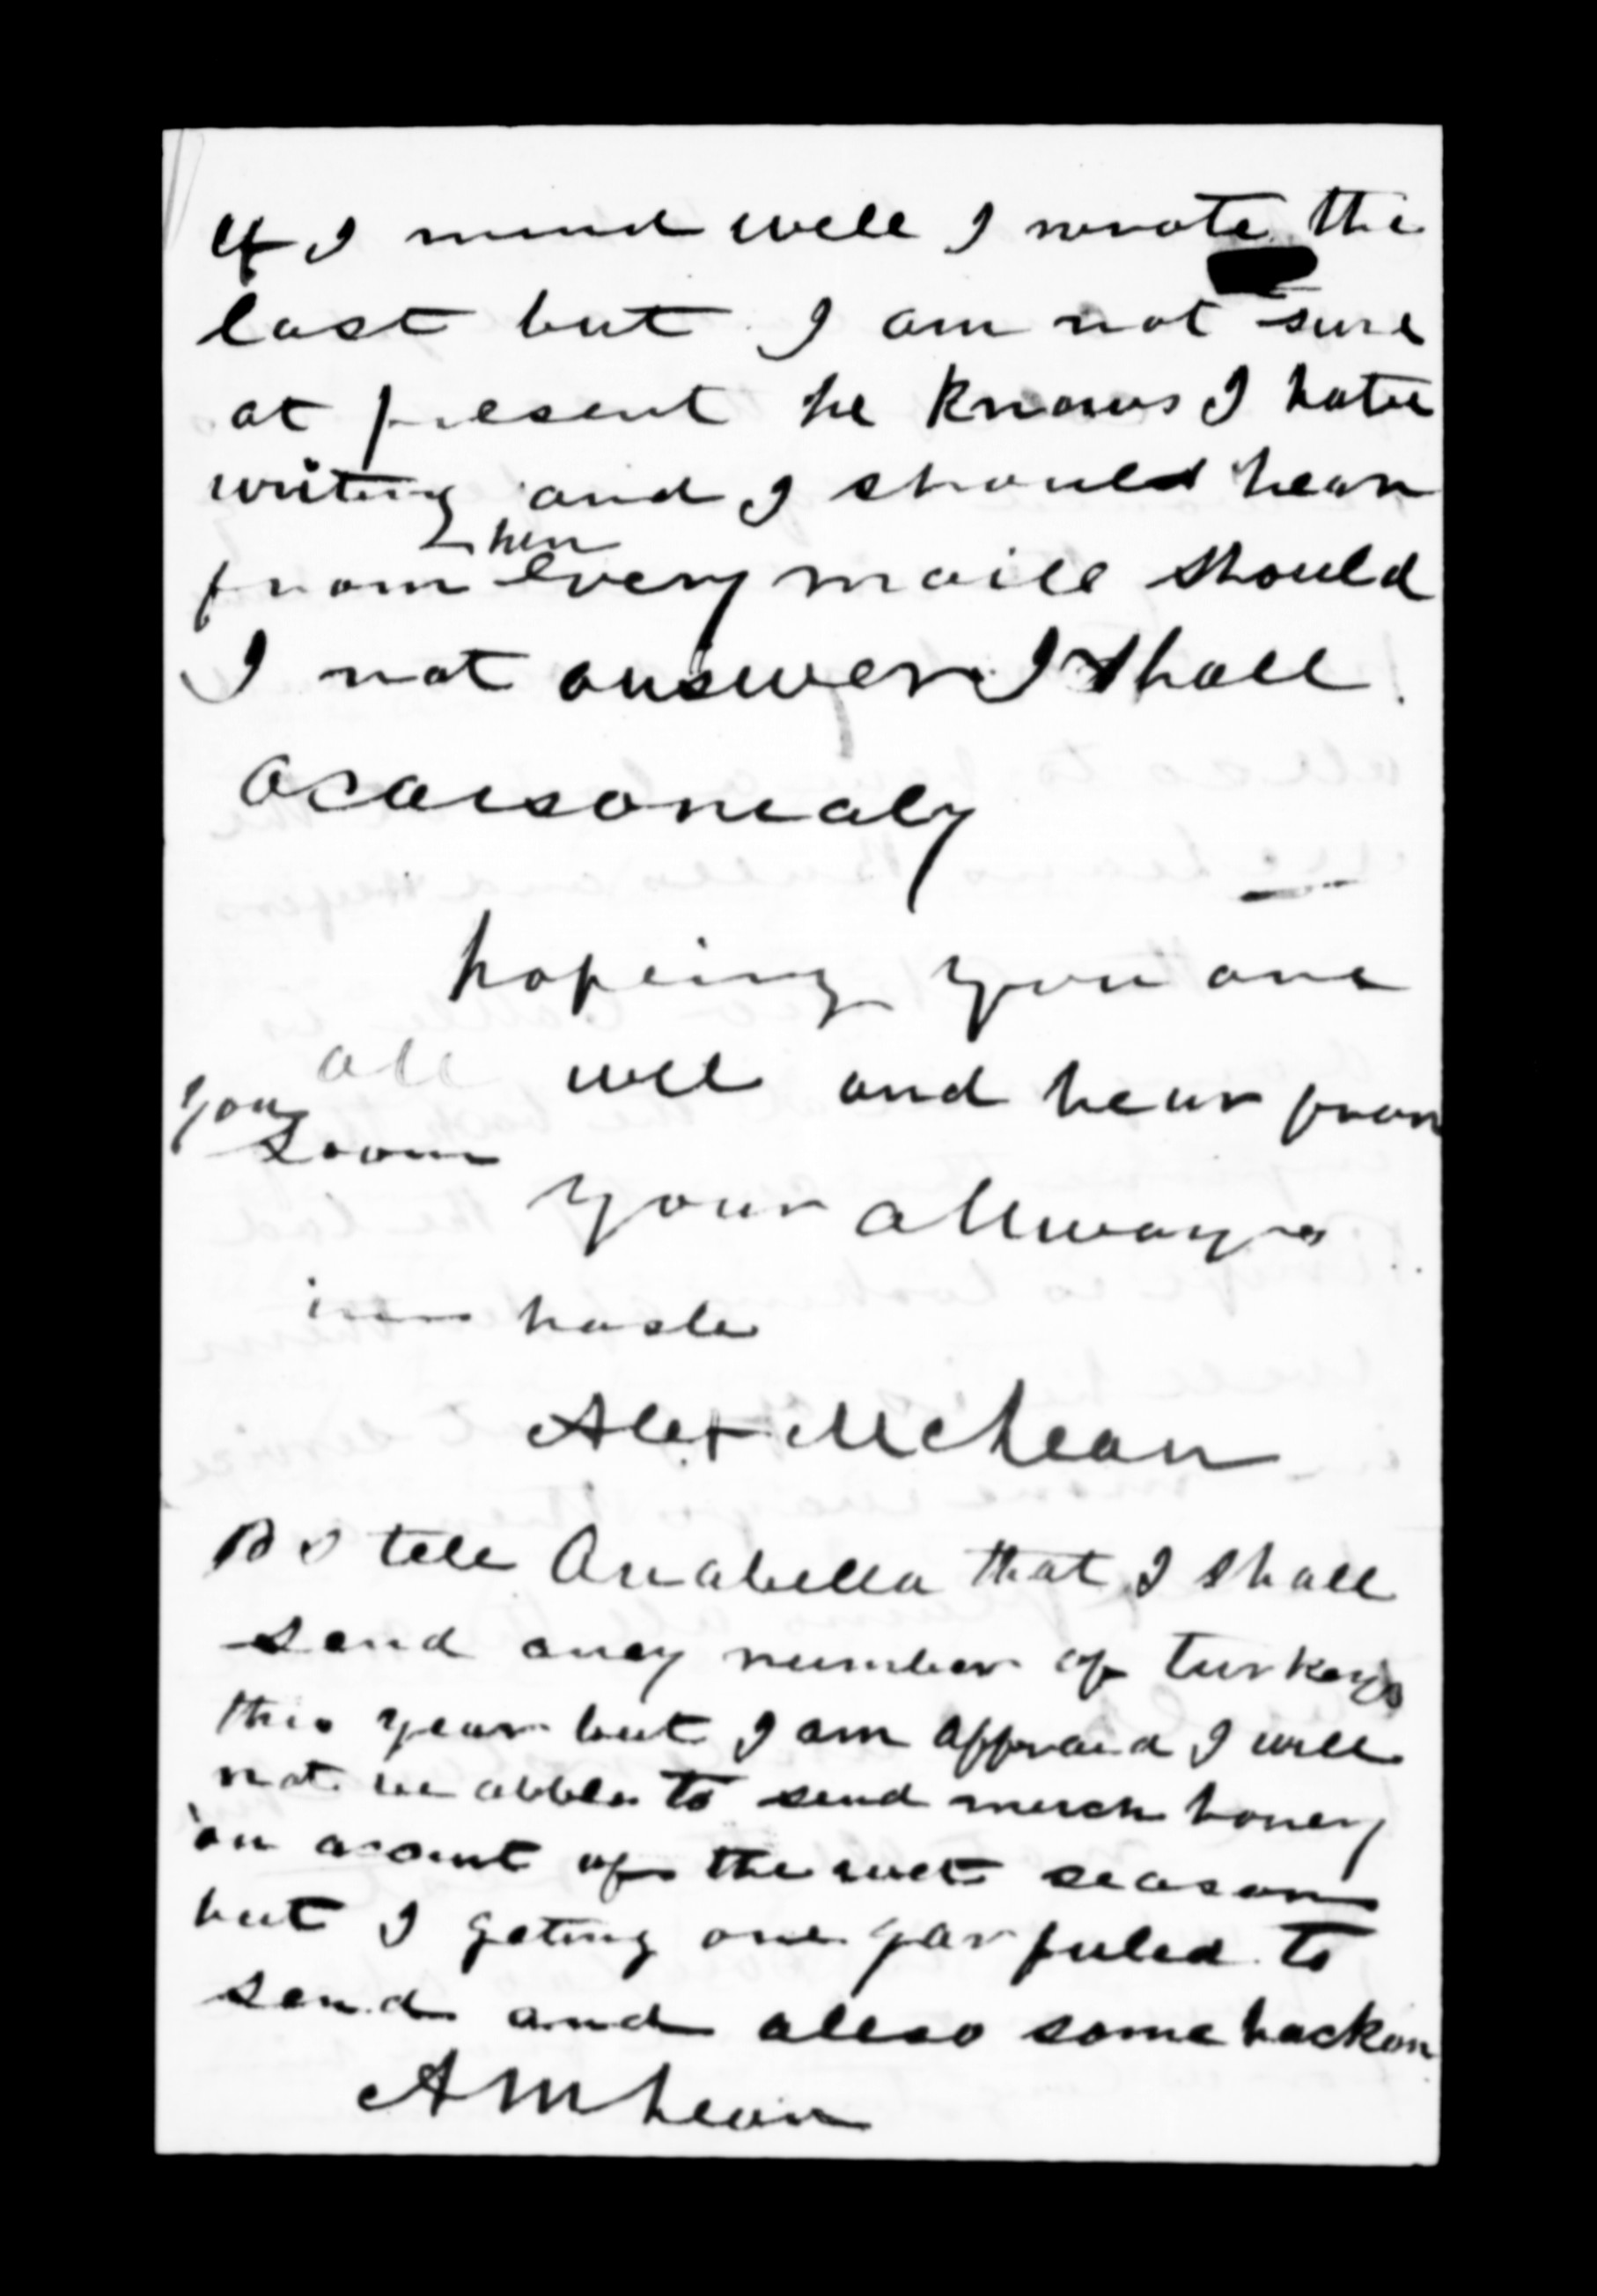 If I mind well I wrote the
last but I am not sure
at present he knows I hate
writing and I should hear
from him every maill should
I not answer I shall
ocaisonialy
hopeing you are
all well and hear from
you soon
your allways
in haste
Alex McLean
PS tell Anabella that I shall
send aney number of turkeys
this year but I am affraid I will
not be abble to send much honey
on acount of the wet season
but I geting one jar filled to
send and allso some backon
A McLean